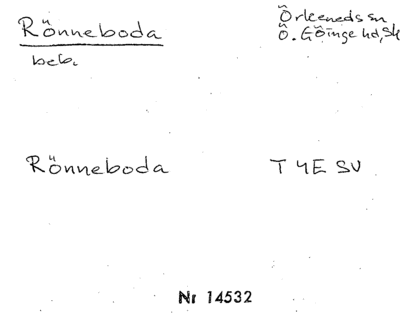 Rönneboda
beb.
Örkeneds sn
Ö. Göinge hd, Sk
Rönneboda
T 4E SV
Nr 14532